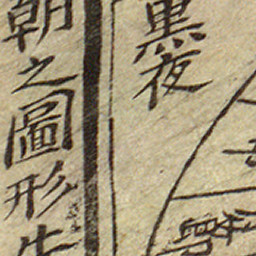 黑夜
朝之圖形